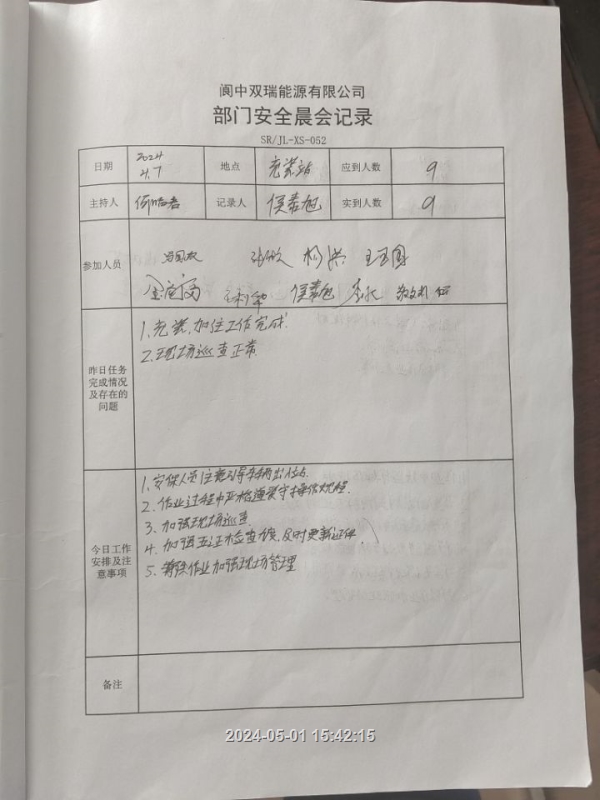 阆中双瑞能源有限公司
部门安全晨会记录
SR/JL-XS-052
日期 2024 4.7 地点 充装站 应到人数 9
主持人 记录人 侯春旭 实到人数 9
参加人员
杨洪 王玉国
侯春旭
昨日任务完成情况及存在的问题
1、充装、加注工作完成.
2、现场巡查正常
今日工作安排及注意事项
1、安保人员注意引导车辆出入站.
2、作业过程中严格遵守操作规程.
3、加强现场巡查
4、加强五证检查,及时更新证件
5、作业加强现场管理
备注
2024-05-01 15:42:15